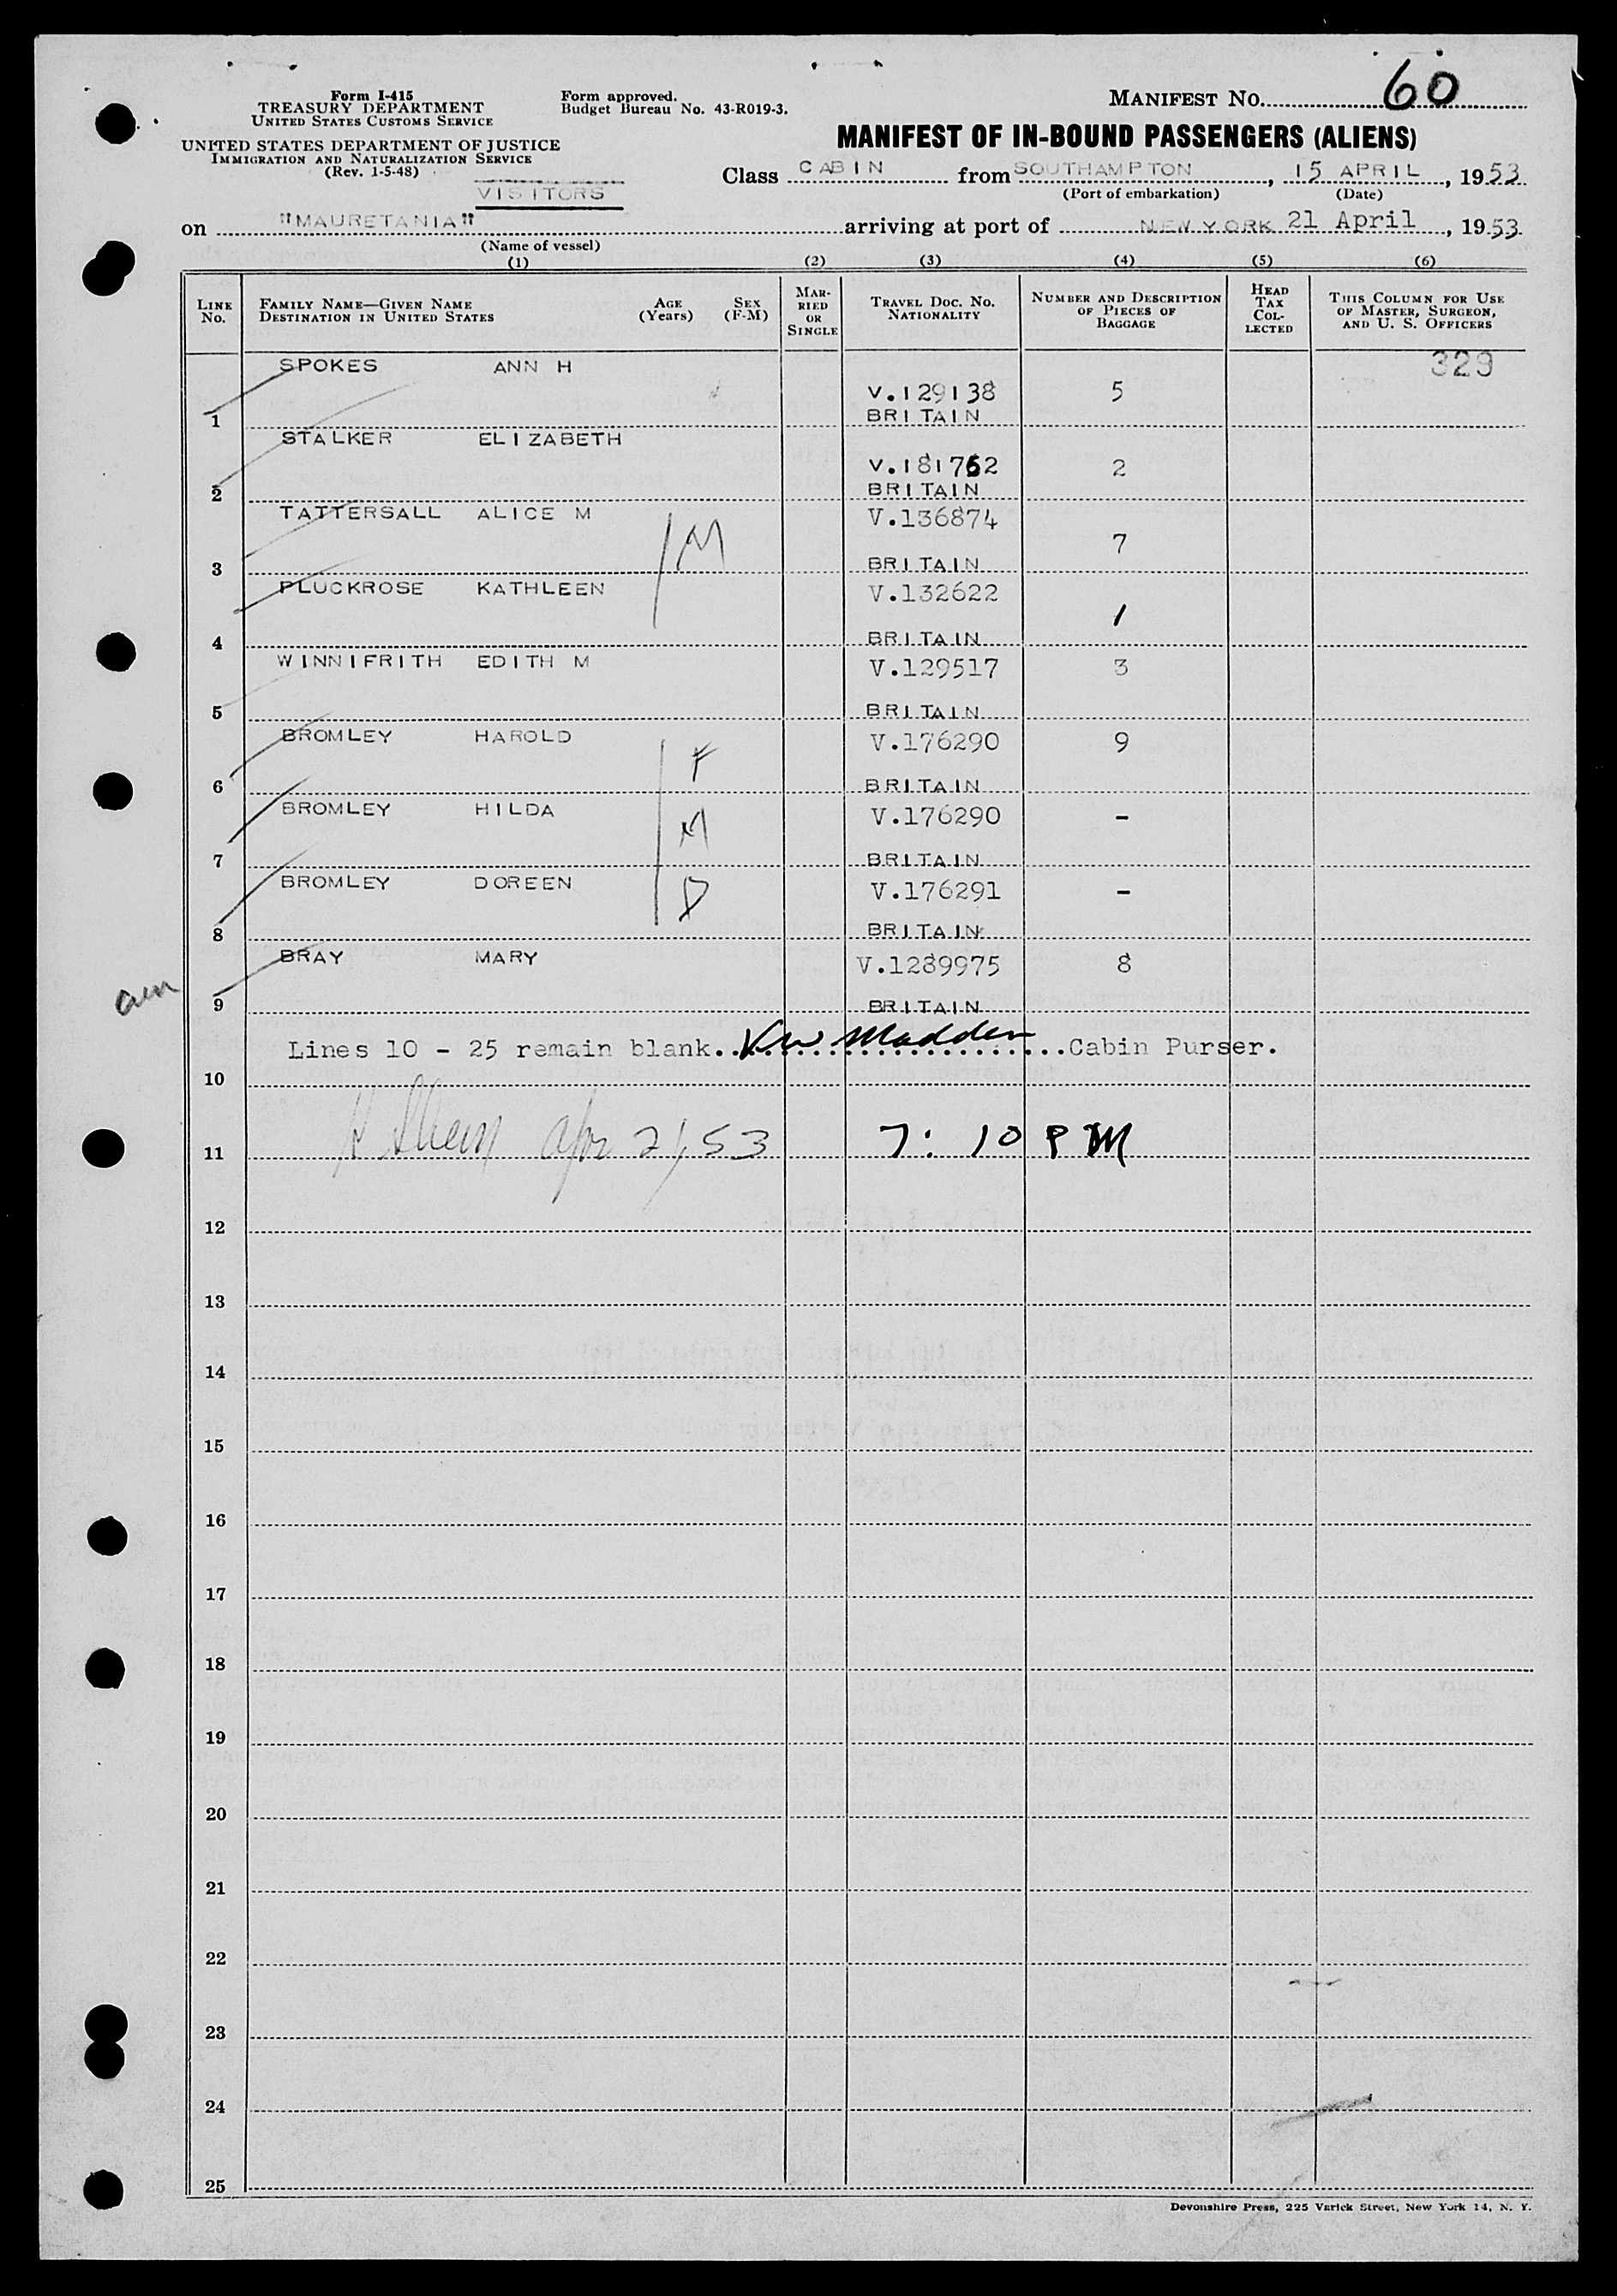 Form I-415
TREASURY DEPARTMENT
UNITED STATES CUSTOMS SERVICE
UNITED STATES DEPARTMENT OF JUSTICE
IMMIGRATION AND NATURALIZATION SERVICE
(Rev. 1-5-48)
Form approved.
Budget Bureau No. 43-R019-3.
MANIFEST No. 60
MANIFEST OF IN-BOUND PASSENGERS (ALIENS)
VISITORS
Class CABIN from SOUTHAMPTON, 15 APRIL, 1953
(Port of embarkation) (Date)
on "MAURETANIA" arriving at port of NEW YORK 21 April, 1953
(Name of vessel)
(1) (2) (3) (4) (5) (6)
LINE No. FAMILY NAME—GIVEN NAME DESTINATION IN UNITED STATES AGE (Years) SEX (F-M) MARRIED OR SINGLE TRAVEL DOC. No. NATIONALITY NUMBER AND DESCRIPTION OF PIECES OF BAGGAGE HEAD TAX COLLECTED THIS COLUMN FOR USE OF MASTER, SURGEON, AND U. S. OFFICERS
329
SPOKES ANN H
V.129138 5
1 BRITAIN
STALKER ELIZABETH
V.181762 2
2 BRITAIN
TATTERSALL ALICE M V.136874
M 7
3 BRITAIN
PLUCKROSE KATHLEEN V.132622
1
4 BRITAIN
WINNIFRITH EDITH M V.129517 3
5 BRITAIN
BROMLEY HAROLD F V.176290 9
6 BRITAIN
BROMLEY HILDA M V.176290 -
7 BRITAIN
BROMLEY DOREEN D V.176291 -
8 BRITAIN
BRAY MARY V.1289975 8
9 BRITAIN
Lines 10 - 25 remain blank. Madden Cabin Purser.
10
11 Apr 21, 53 7:10 PM
12
13
14
15
16
17
18
19
20
21
22
23
24
25
Devonshire Press, 225 Varick Street, New York 14, N. Y.